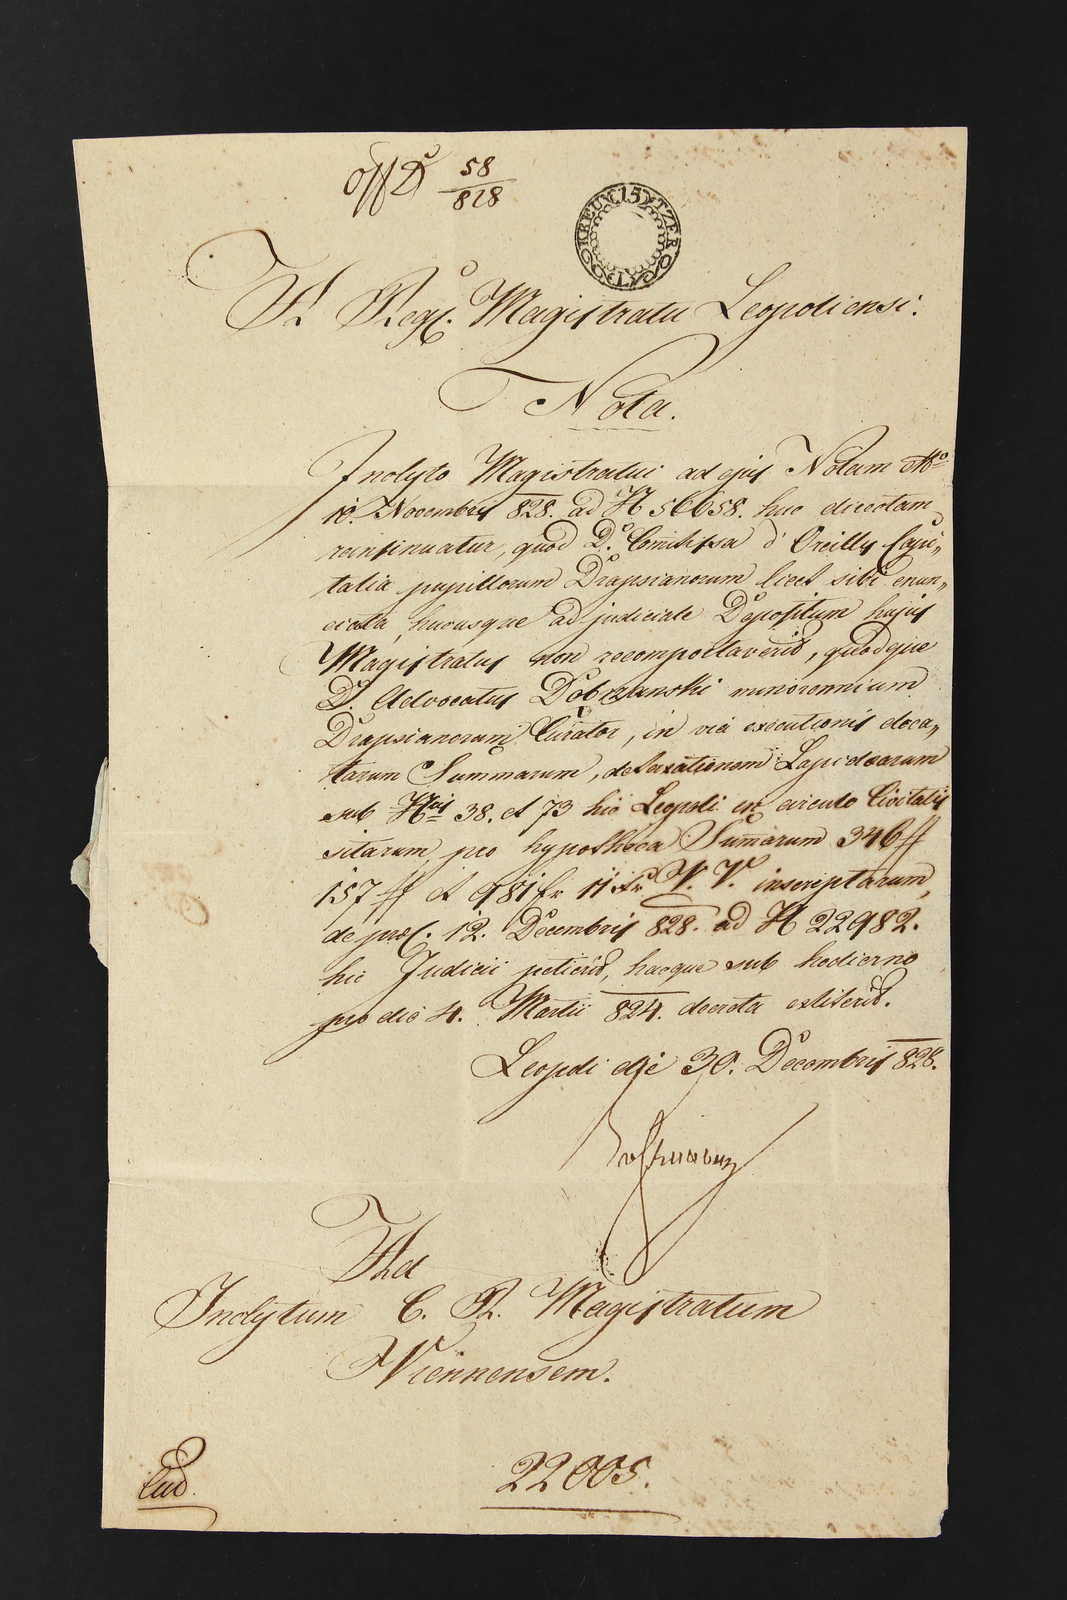 58
828
15 KREUTZER
A Regl. Magistratu Leopoliensi.
Nota.
Inclyto Magistratui ad ejus Notam
10. Novembris 828. ad N 56658. huc directam
reinsinuatur, quod D. Comitissa d' Oreilly Capi„
talia pupillorum Drapsianorum licet sibi enun„
ciata, hucusque ad judiciale Depositum hujus
Magistratus non recomportaverit, quodque
D. Advocatus Dobrzanski minorennium
Drapsianorum Curator, in via executionis
tarum Summarum, detaxationem Lapidearum
sub Nris 38. et 73 hic Leopoli in circulo Civitatis
sitarum, pro hypotheca Summarum 346 ff
157 ff et 981 fr 11 xr V. V. inscriptarum,
de præs. 12. Decembris 828. ad N 22982.
hic Judicii petierit, hacque sub hodierno
pro die 4. Martii 824. decreta extiterit.
Leopoli die 30. Decembris 828.
Ad
Inclytum C. R. Magistratum
Viennensem.
22005.